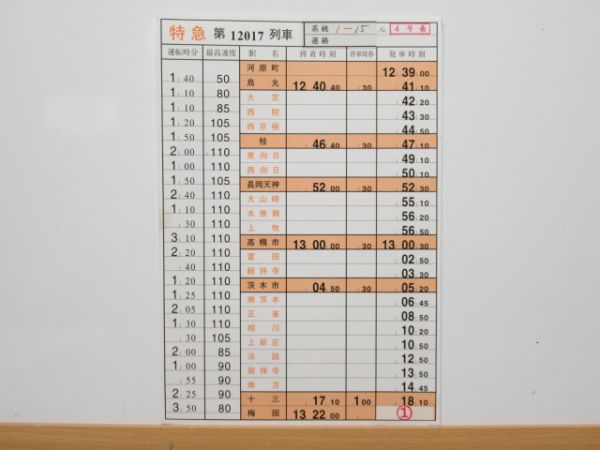 特急 第 12017 列車 系統 1-15 № 4号表
連絡
運転時分 最高速度 駅名 到着時刻 停車時秒 発車時刻
河原町 12 39 00
1 40 50 烏丸 12 40 40 30 41 10
1 10 80 大宮 42 20
1 10 85 西院 43 30
1 20 105 西京極 44 50
1 50 105 桂 46 40 30 47 10
2 00 110 東向日 49 10
1 00 110 西向日 50 10
1 50 105 長岡天神 52 00 30 52 30
2 40 110 大山崎 55 10
1 10 110 水無瀬 56 20
30 110 上牧 56 50
3 10 110 高槻市 13 00 00 30 13 00 30
2 20 110 富田 02 50
40 110 総持寺 03 30
1 20 110 茨木市 04 50 30 05 20
1 25 110 南茨木 06 45
2 05 110 正雀 08 50
1 30 110 相川 10 20
30 105 上新庄 10 50
2 00 85 淡路 12 50
1 00 90 崇禅寺 13 50
55 90 南方 14 45
2 25 90 十三 17 10 1 00 18 10
3 50 80 梅田 13 22 00 ①